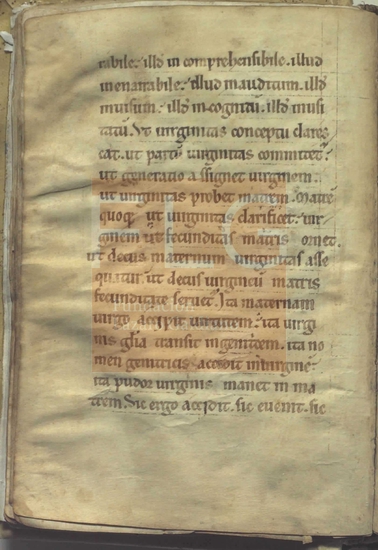 rabile. illd̄ in comprehensibile. illud
inenarrabile. illud inauditum. illd̄
inuisum. illd̄ incognitū. illd̄ inusi
tatū. Vt uirginitas conceptu clares
cat. ut partu uirginitas commitet᷑.
ut generatio assignet uirginem.
ut uirginitas probet matrem. Matrē
quoq; ut uirginitas clarificet. uir
ginem ut fecunditas matris ornet.
ut decus maternum uirginitas asse
quatur. ut decus uirgineū matris
fecunditate seruet. Ita maternam
uirgo accipit uirtutem. ita uirgi
nis gl̄ia transit in genitricem. ita no
men genitricis accedit in uirginē.
ita pudor uirginis manet in ma
trem. Sic ergo accidit. sic euenit. sic